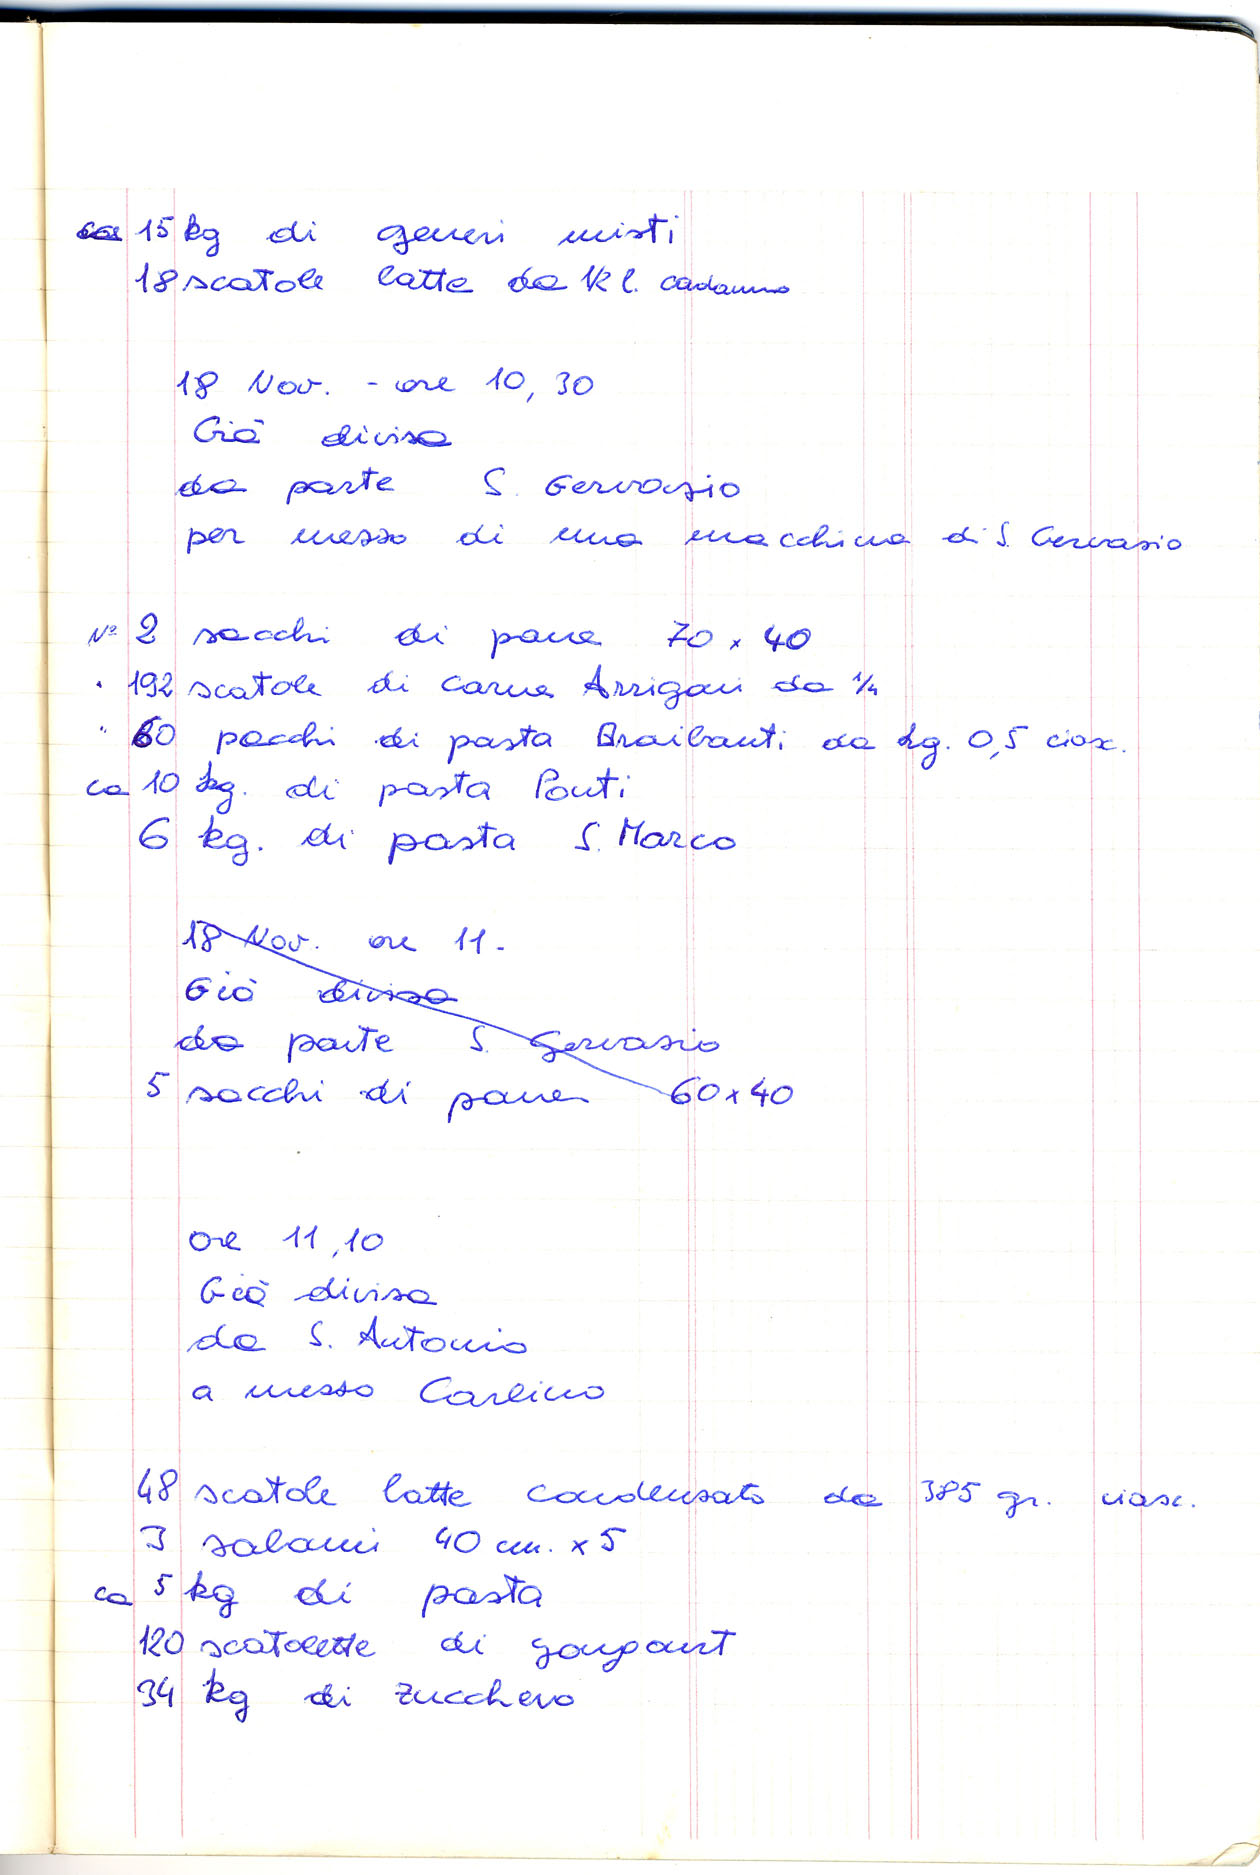 ca 15 kg di generi misti
18 scatole latte da 1/2 l. cadauno
18 Nov. - ore 10,30
Già divisa
da parte S. Gervasio
per messo di una macchina di S. Gervasio
N° 2 sacchi di pane 70 x 40
" 192 scatole di carne Arrigoni da 1/4
" 60 pacchi di pasta Braibanti da kg. 0,5 ciasc.
ca 10 kg. di pasta Ponti
6 kg. di pasta S. Marco
18 Nov. ore 11.
Già divisa
da parte S. Gervasio
5 sacchi di pane 60 x 40
ore 11,10
Già divisa
da S. Antonio
a messo Carlino
48 scatole latte condensato da 385 gr. ciasc.
3 salami 40 cm. x 5
ca 5 kg di pasta
120 scatolette di
34 kg di zucchero